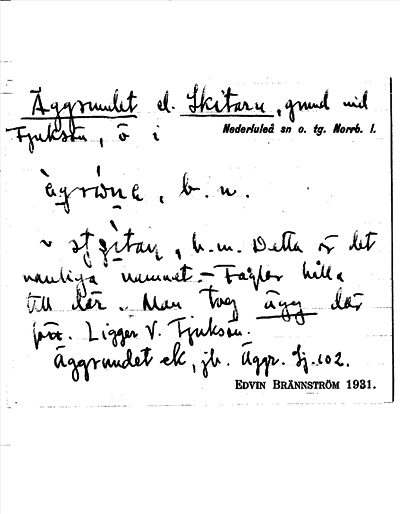 Äggrundet el. Skitarn, grund vid
Fjuksön, ö i Nederluleå sn o. tg. Norrb. l.
b. n.
h. m. Detta är det
vanliga namnet. – Fåglar hålla
till där. Man tog ägg där
förr. Ligger V. Fjuksön.
Äggrundet ek, jb. Äggr. Sj. 102.
EDVIN BRÄNNSTRÖM 1931.